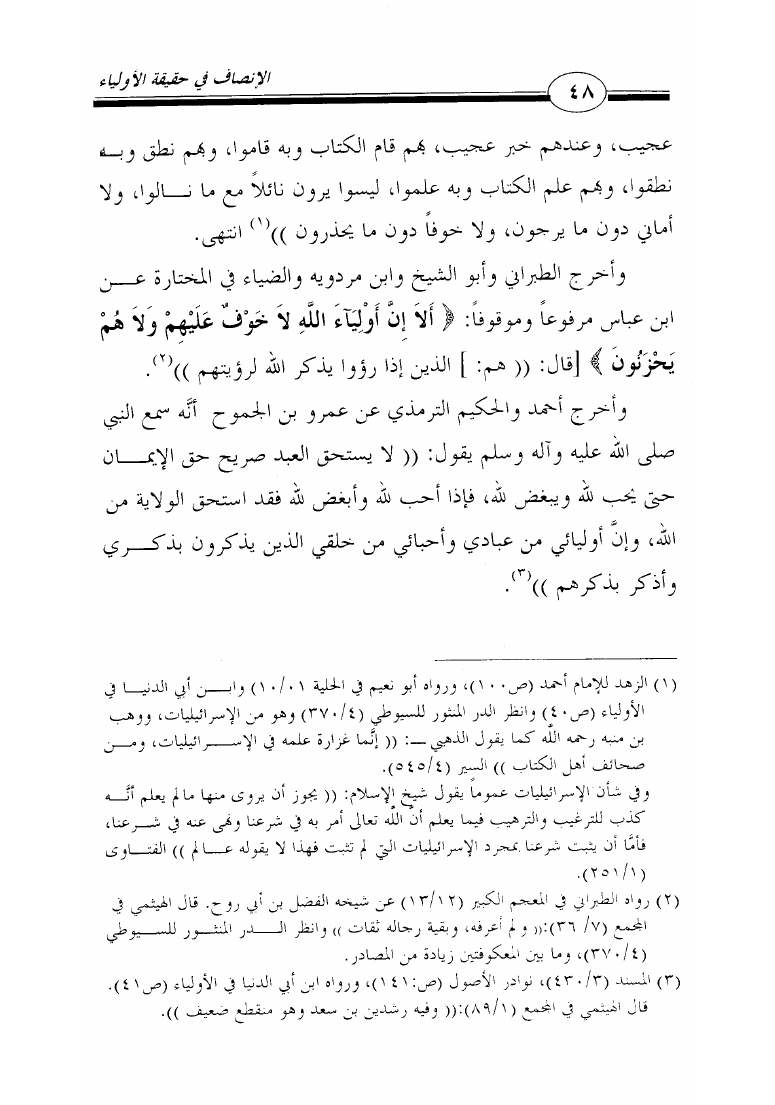 الإنصاف في حقيقة الأولياء
٤٨
عجيب، وعندهم خبر عجيب، بهم قام الكتاب وبه قاموا، وبهم نطق وبـه
نطقوا، وبهم علم الكتاب وبه علموا، ليسوا يرون نائلاً مع ما نـالوا، ولا
أماني دون ما يرجون، ولا خوفاً دون ما يحذرون ))(١) انتهى.
وأخرج الطبراني وأبو الشيخ وابن مردويه والضياء في المختارة عـن
ابن عباس مرفوعاً وموقوفاً: ﴿ أَلاَ إِنَّ أَوْلِيَآءَ اللَّهِ لاَ خَوْفٌ عَلَيْهِمْ وَلاَ هُمْ
يَحْزَنُونَ ﴾ [قال: (( هم: ] الذين إذا رؤوا يذكر الله لرؤيتهم ))(٢).
وأخرج أحمد والحكيم الترمذي عن عمرو بن الجموح أنَّه سمع النبي
صلى الله عليه وآله وسلم يقول: (( لا يستحق العبد صريح حق الإيمـان
حتى يحب لله ويبغض لله، فإذا أحب لله وأبغض لله فقد استحق الولاية من
الله، وإنَّ أوليائي من عبادي وأحبائي من خلقي الذين يذكرون بذكـري
وأذكر بذكرهم ))(٣).
(١) الزهد للإمام أحمد (ص١٠٠)، ورواه أبو نعيم في الحلية ١٠/٠١) وابـن أبي الدنيـا في
الأولياء (ص٤٠) وانظر الدر المنثور للسيوطي (٣٧٠/٤) وهو من الإسرائيليات، ووهب
بن منبه رحمه الله كما يقول الذهبي ــ: (( إنَّما غزارة علمه في الإسـرائيليات، ومـن
صحائف أهل الكتاب )) السير (٥٤٥/٤).
وفي شأن الإسرائيليات عموماً يقول شيخ الإسلام: (( يجوز أن يروى منها ما لم يعلم أنَّـه
كذب للترغيب والترهيب فيما يعلم أنَّ الله تعالى أمر به في شرعنا ونهى عنه في شـرعنا،
فأمَّا أن يثبت شرعنا بمجرد الإسرائيليات التي لم تثبت فهذا لا يقوله عـالم )) الفتـاوى
(٢٥١/١).
(٢) رواه الطبراني في المعجم الكبير (١٣/١٢) عن شيخه الفضل بن أبي روح. قال الهيثمي في
المجمع (٧/ ٣٦):(( و لم أعرفه، وبقية رجاله ثقات )) وانظر الـدر المنثـور للسـيوطي
(٣٧٠/٤)، وما بين المعكوفتين زيادة من المصادر.
(٣) المسند (٤٣٠/٣)، نوادر الأصول (ص:١٤١)، ورواه ابن أبي الدنيا في الأولياء (ص٤١).
قال الهيثمي في المجمع (٨٩/١):(( وفيه رشدين بن سعد وهو منقطع ضعيف )).